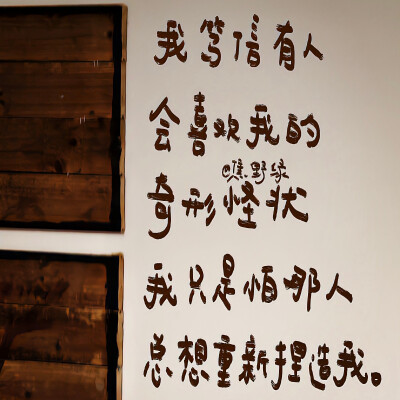 我笃信有人
会喜欢我的
@瞧.野绿
奇形怪状
我只是怕那人
总想重新捏造我。